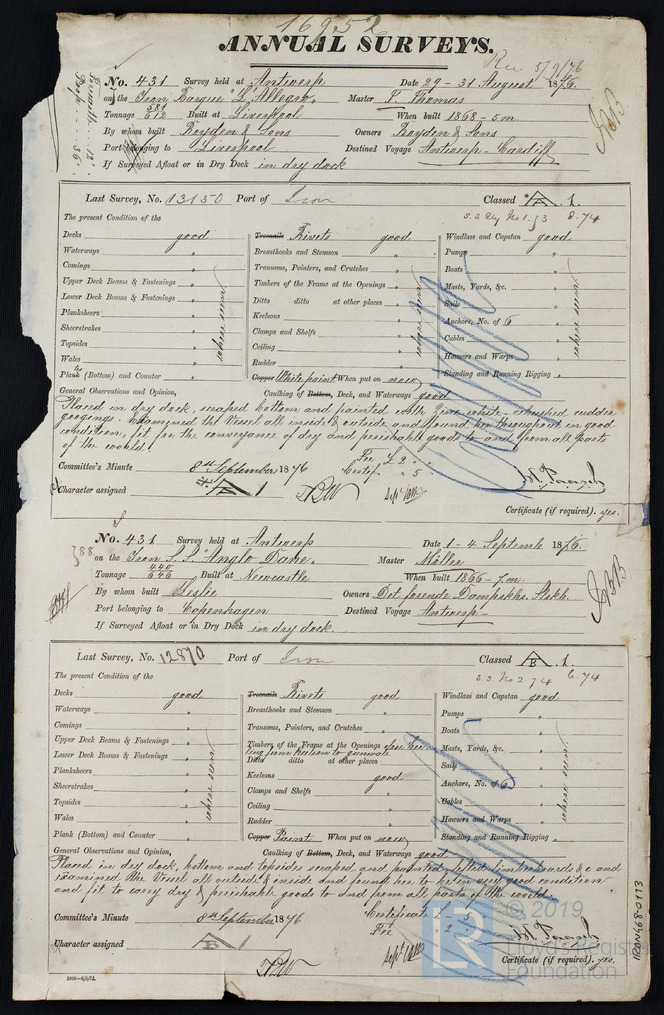 16952
ANNUAL SURVEYS.
Rec 5/9/76
No. 431 Survey held at Antwerp Date 29 - 31 August 1876.
on the Iron Barque "L'Allegro" Master P. Thomas
Tonnage 581 612 Built at Liverpool When built 1868 - 5m.
By whom built Royden & Sons Owners Royden & Sons
Port belonging to Liverpool Destined Voyage Antwerp - Cardiff
If Surveyed Afloat or in Dry Dock in dry dock
Last Survey, No. 13150 Port of Iron Classed A 1.
8.74
The present Condition of the
Decks good Treenails Rivets good Windlass and Capstan good
Waterways " Breasthooks and Stemson " Pumps "
Comings " Transoms, Pointers, and Crutches " Boats "
Upper Deck Beams & Fastenings " Timbers of the Frame at the Openings " Masts, Yards, &c. "
Lower Deck Beams & Fastenings " Ditto ditto at other places " Sails "
Planksheers " Keelsons " Anchors, No. of 6 "
Sheerstrakes " Clamps and Shelfs " Cables "
Topsides " Ceiling " Hawsers and Warps "
Wales " Rudder " Standing and Running Rigging "
Plank (Bottom) and Counter " Copper White paint When put on now
General Observations and Opinion, Caulking of Bottom, Deck, and Waterways good
Placed in dry dock, scraped bottom and painted with Zinc white, rebushed rudder
googings. Examined the Vessel all inside & outside and found her throughout in good
condition, fit for the conveyance of dry and perishable goods to and from all parts
of the world.
Fee £ 2 " "
Committee's Minute 8th September 1876 Certif. " 5
Character assigned A 1
Certificate (if required). yes.
No. 431 Survey held at Antwerp Date 1 - 4 Septemb 1876.
on the Iron S.S. "Anglo Dane" Master Möller
Tonnage 440 646 Built at Newcastle When built 1866 - 7m.
By whom built Leslie Owners Det forende Dampskbs. Slskb.
Port belonging to Copenhagen Destined Voyage Antwerp -
If Surveyed Afloat or in Dry Dock in dry dock.
Last Survey, No. 12870 Port of Iron Classed B .1.
s.s No 2 74 6.74
The present Condition of the
Decks good Treenails Rivets good Windlass and Capstan good
Waterways " Breasthooks and Stemson " Pumps "
Comings " Transoms, Pointers, and Crutches " Boats "
Upper Deck Beams & Fastenings " Timbers of the Frame at the Openings Masts, Yards, &c. "
Lower Deck Beams & Fastenings " Ditto ditto at other places Sails "
Planksheers " Keelsons good Anchors, No. of 6 "
Sheerstrakes " Clamps and Shelfs " Cables "
Topsides " Ceiling " Hawsers and Warps "
Wales " Rudder " Standing and Running Rigging "
Plank (Bottom) and Counter " Copper Paint When put on now
General Observations and Opinion, Caulking of Bottom, Deck, and Waterways good
Placed in dry dock, bottom and topsides scraped and painted, lifted limber boards &c and
examined the Vessel all outside & inside and found her to be in very good condition
and fit to carry dry & perishable goods to and from all parts of the world
Certificate £ " 5
Committee's Minute 8th September 1876 Fee " 2 "
Character assigned B 1
Certificate (if required). yes.
IRON468-0173
© 2019
Lloyd's Register
Foundation
LR